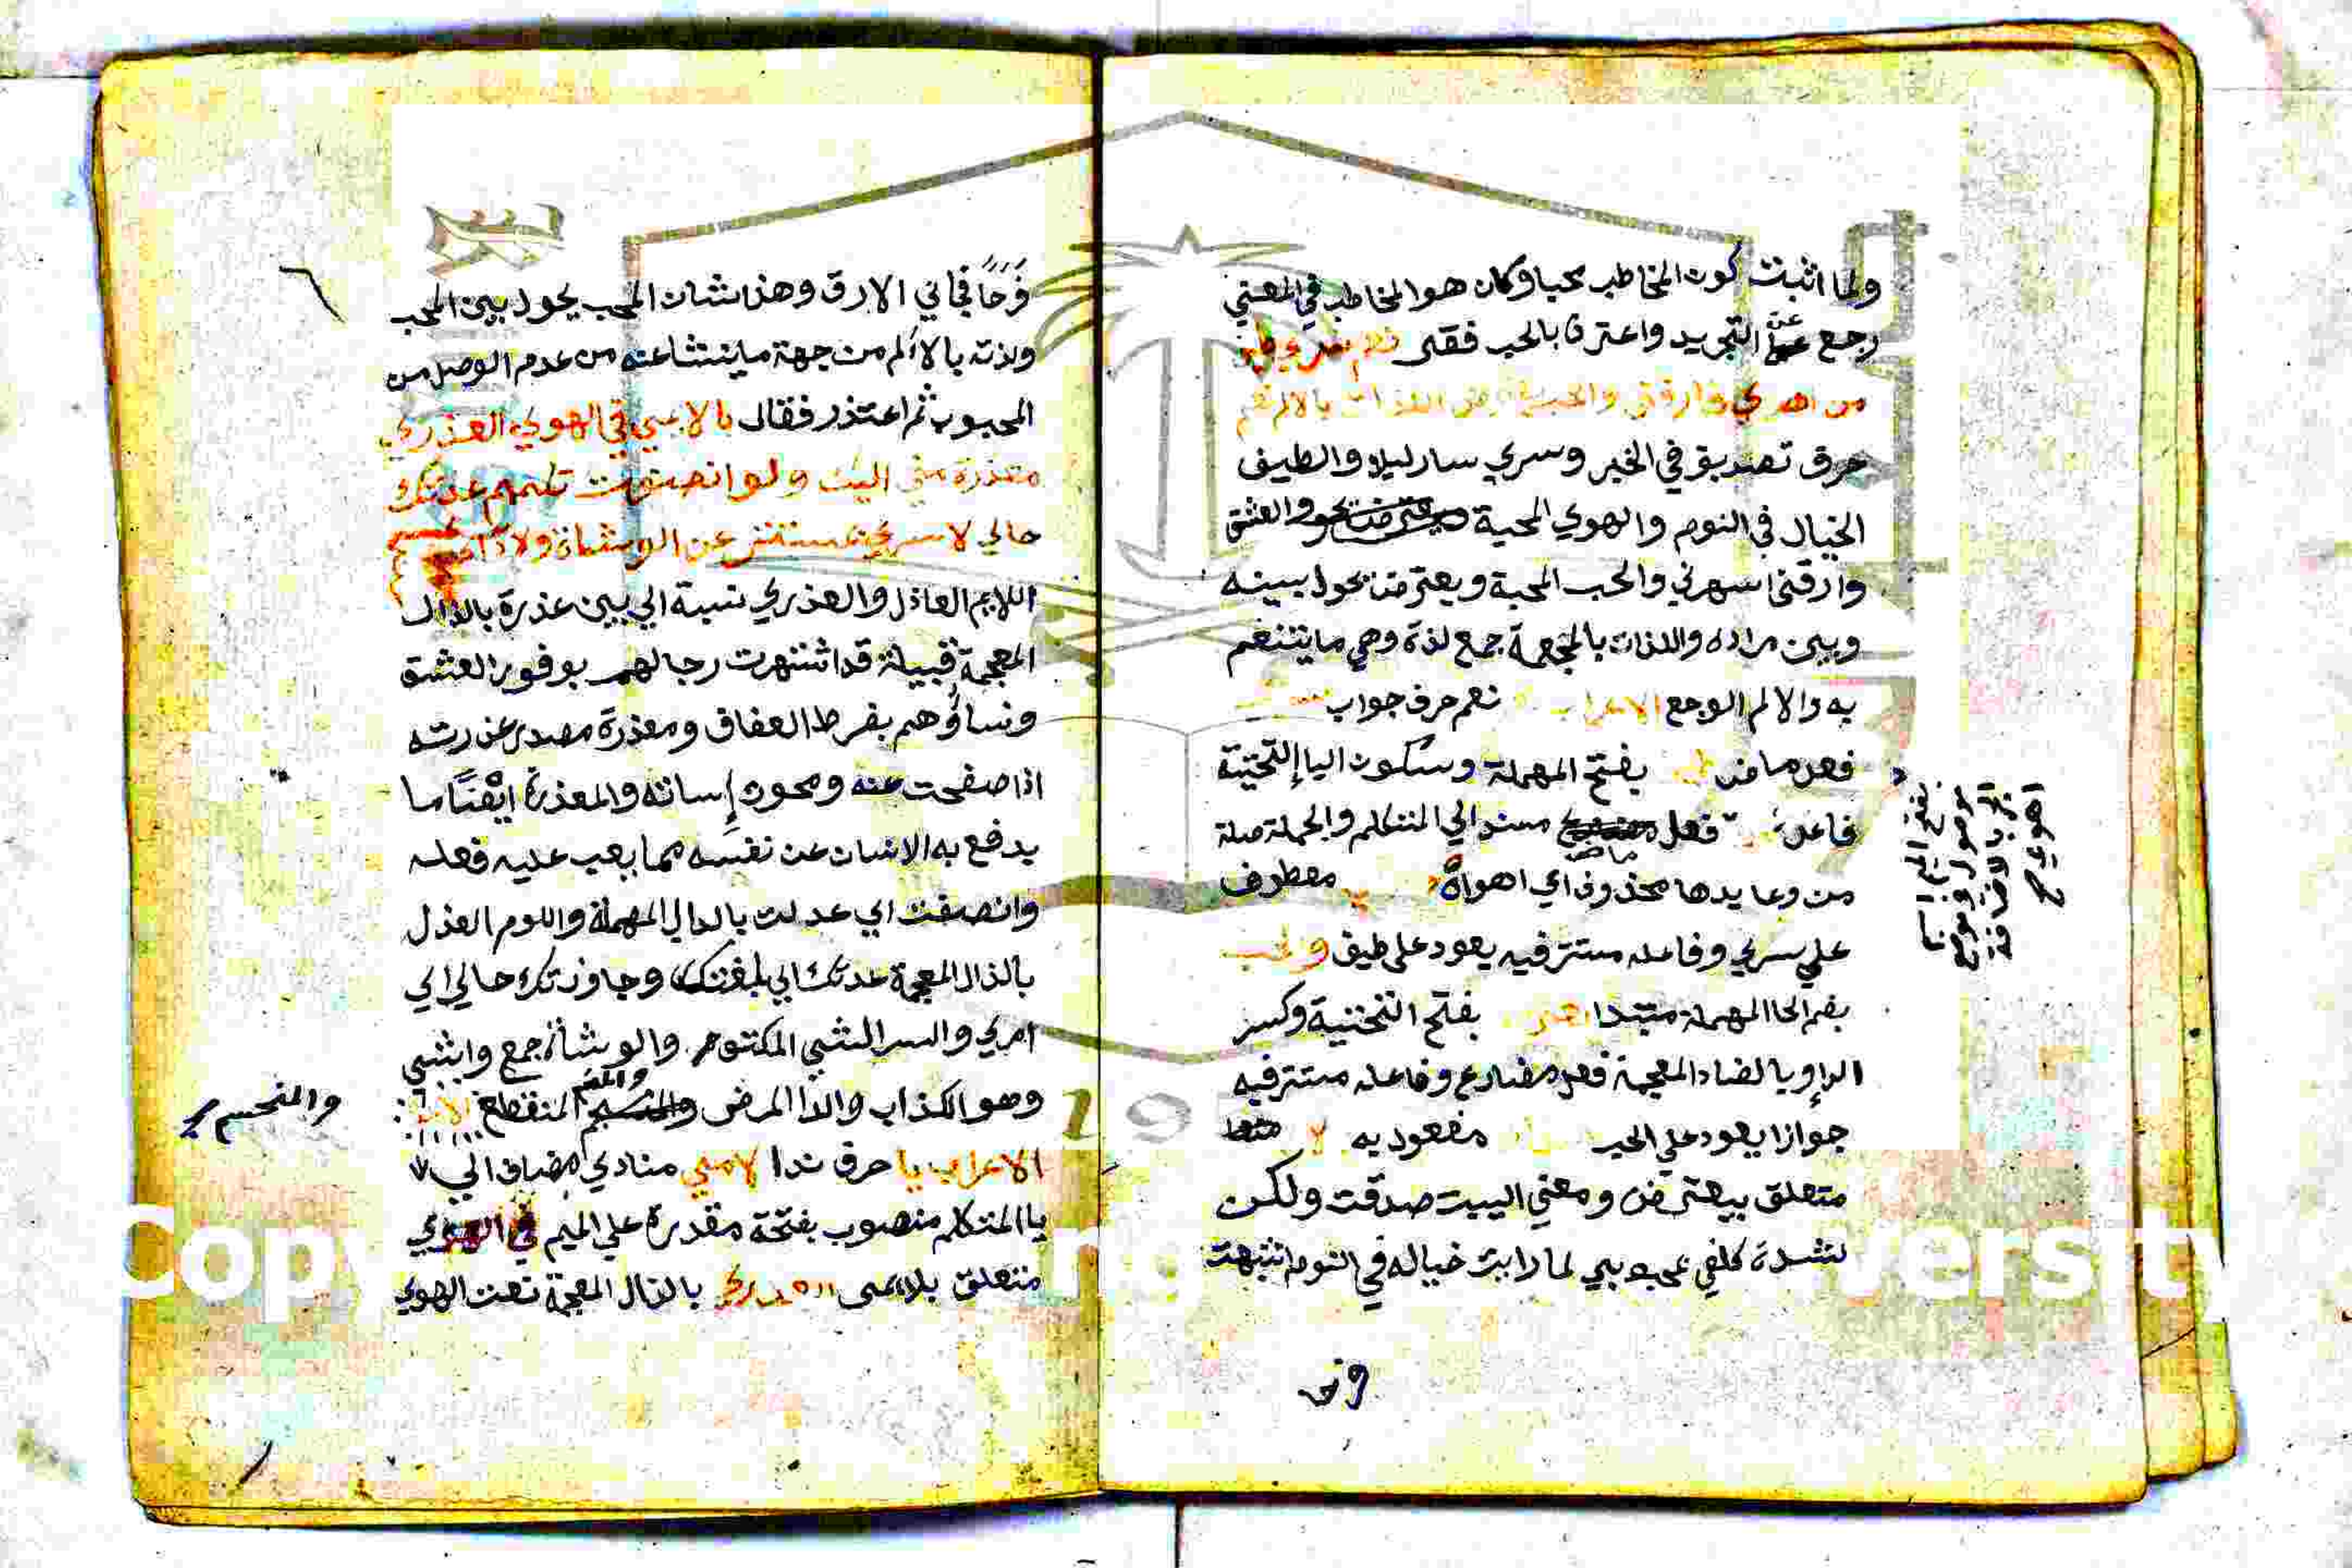 ولما اثبت كون المخاطب محبا وكان هو المخاطب في المعني
رجع عن التجريد واعترف بالحب فقال نعم سري طيف
من اهوي فارقني والحب يعترض اللذات بالالم نعم
حرف تصديق في الخبر وسري سار ليلا والطيف
الخيال في النوم والهوي المحبة والعشق
وارقني اسهرني والحب المحبة ويعترض يحول بينه
وبين مراده واللذات بالمعجمة جمع لذة وهي ما يتنعم
به والالم الوجع الاعراب نعم حرف جواب
فعل ماض بفتح المهملة وسكون اليا التحتية
فاعل فعل ماض مسند الي المتكلم والجملة صلة
من وعايدها محذوف اي اهواه معطوف
علي سري وفاعله مستتر فيه يعود علي طيف والحب
بضم الحا المهملة مبتدا بفتح التحتية وكسر
الرا وبالضاد المعجمة فعل مضارع وفاعله مستتر فيه
جوازا يعود علي الحب مفعول به
متعلق بيعترض ومعني البيت صدقت ولكن
لشدة كلفي بمحبوبي لما رايت خياله في النوم انتبهت
اهوي
فرحا
فرحا فجاني الارق وهذا شان الحب يحول بين المحب
ولذته بالالم من جهة ما ينشا عنه من عدم الوصل من
المحبوب ثم اعتذر فقال يا لايمي في الهوي العذري
معذرة مني اليك ولو انصفت لم تلم عدتك
حالي لا سري بمستتر عن الوشاة ولا دائي بمنحسم
اللايم العاذل والعذري نسبة الي بني عذرة بالذال
المعجمة قبيلة قد اشتهرت رجالهم بوفور العشق
ونساؤهم بفرط العفاف ومعذرة مصدر عذرته
اذا صفحت عنه ومحوت إساته والمعذرة ايضًا ما
يدفع به الانسان عن نفسه مما يعب عليه فعله
وانصفت اي عدلت بالدال المهملة واللوم العذل
بالذال المعجمة عدتك اي بلغتك وجاوزتك حالي اي
امري والسر الشي المكتوم والوشاة جمع واشي
وهو الكذاب والدا المرض المنقطع
والمنحسم
الاعراب يا حرف ندا لايمي منادي مضاف الي
يا المتكلم منصوب بفتحة مقدرة علي الميم في الهوي
متعلق بلايمي العذري بالذال المعجمة نعت الهوي